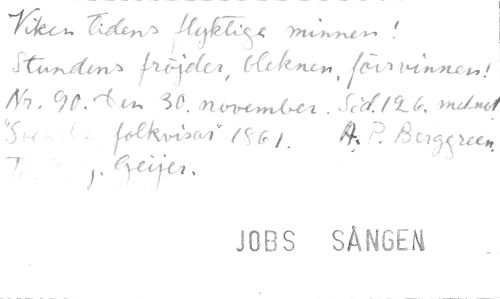 Viken tidens flyktiga minnen!
Stundens fröjder, bleknen, försvinnen!
Nr. 90. Den 30. november. Sid. 126. med not
"Svenska folkvisor" 1861. A. P. Berggreen.
Geijer.
JOBS SÅNGEN